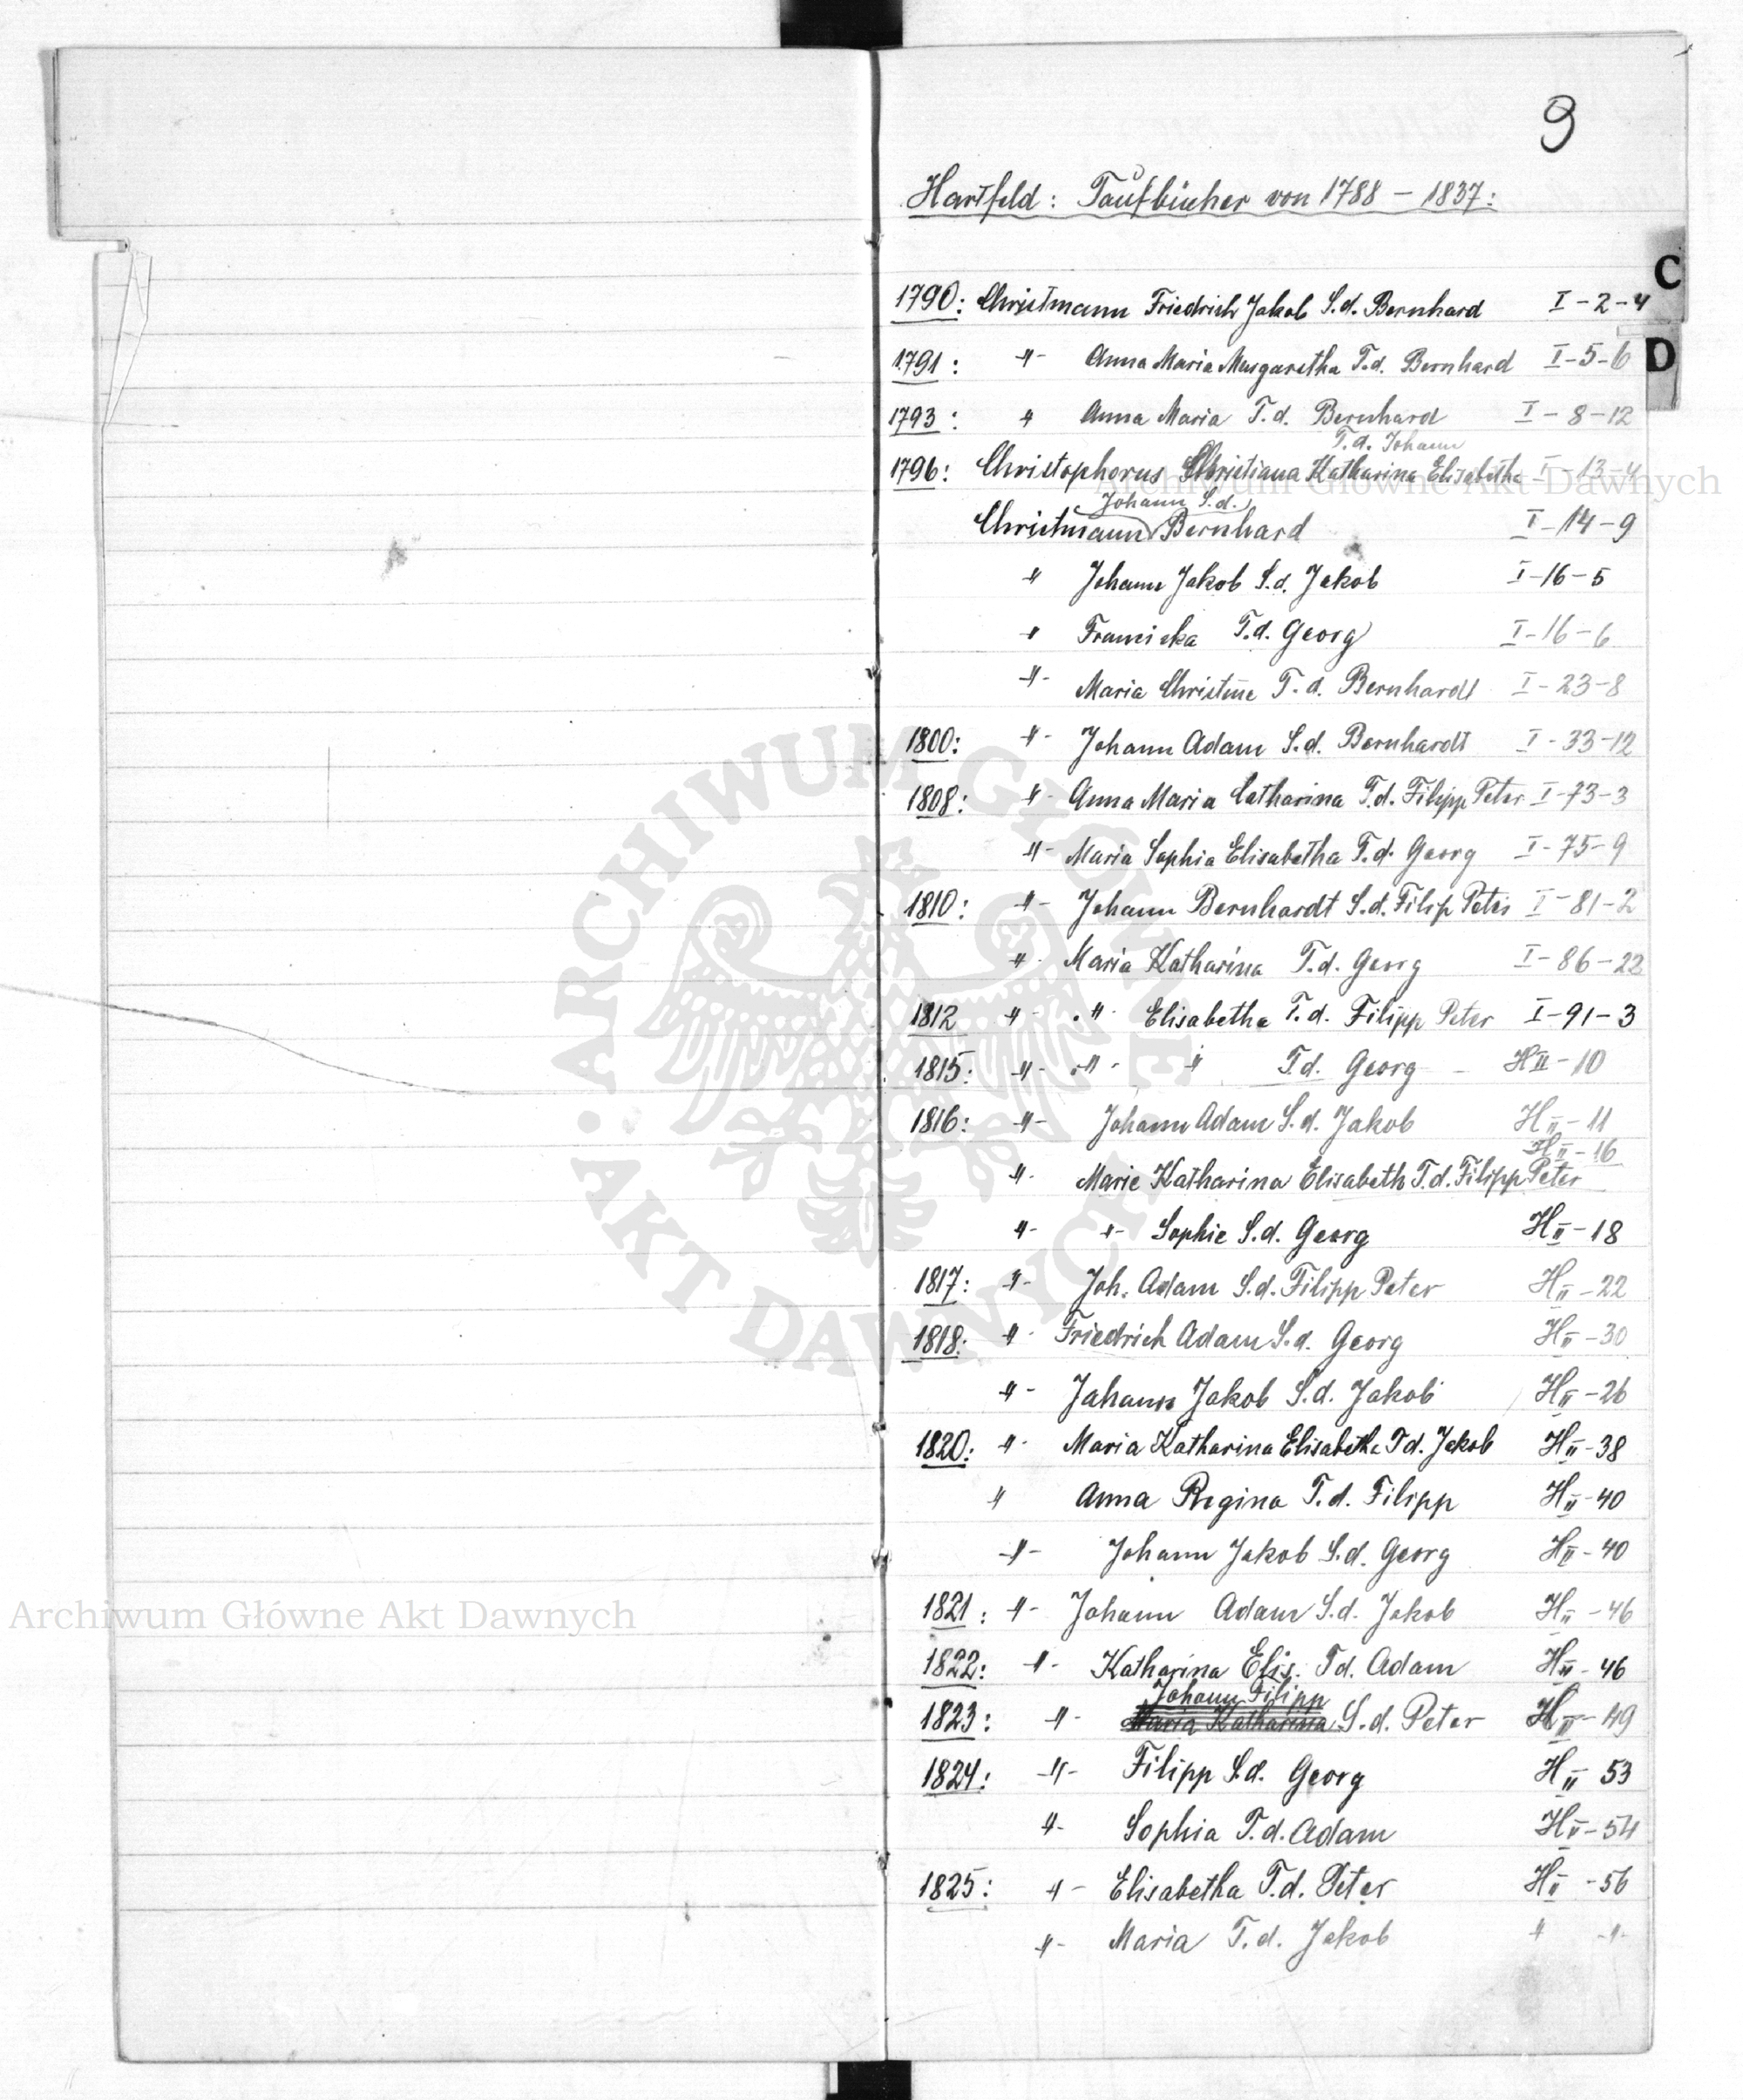 9
Hartfeld: Taufbücher von 1788 – 1837:
C
1790: Christmann Friedrich Jakob S.d. Bernhard I-2-4
D
1791: -"- Anna Maria Margaretha T.d. Bernhard I-5-6
1793: " Anna Maria T.d. Bernhard I-8-12
T.d. Johann
1796: Christophorus Christiana Katharina Elisabetha I-13-4
Johann S.d.
Christmann Bernhard I-14-9
" Johann Jakob S.d. Jakob I-16-5
" T.d. Georg I-16-6
-"- Maria Christine T.d. Bernhardt I-23-8
1800: -"- Johann Adam S.d. Bernhardt I-33-12
1808: -"- Anna Maria Catharina T.d. Filipp Peter I-73-3
-"- Maria Sophia Elisabetha T.d. Georg I-75-9
1810: -"- Johann Bernhardt S.d. Filip Peter I-81-2
-"- Maria Katharina T.d. Georg I-86-22
1812 -"- -"- Elisabetha T.d. Filipp Peter I-91-3
1815: -"- -"- " T.d. Georg – H II-10
1816: -"- Johann Adam S.d. Jakob H II-11
H II-16
-"- Marie Katharina Elisabeth T.d. Filipp Peter
-"- -"- Sophie S.d. Georg H II-18
1817: -"- Joh. Adam S.d. Filipp Peter H II-22
1818: -"- Friedrich Adam S.d. Georg H II-30
-"- Johann Jakob S.d. Jakob H II-26
1820: -"- Maria Katharina Elisabetha T.d. Jakob H II-38
" Anna Regina T.d. Filipp H II-40
-"- Johann Jakob S.d. Georg H II-40
1821: -"- Johann Adam S.d. Jakob H II-46
1822: -"- Katharina Elis. T.d. Adam H II-46
Johann Filipp
1823: -"- Maria Katharina S.d. Peter H II-49
1824: -"- Filipp S.d. Georg H II 53
-"- Sophia T.d. Adam H II-54
1825: -"- Elisabetha T.d. Peter H II-56
-"- Maria T.d. Jakob " -"-
Archiwum Główne Akt Dawnych
Archiwum Główne Akt Dawnych
ARCHIWUM GŁÓWNE • AKT DAWNYCH •